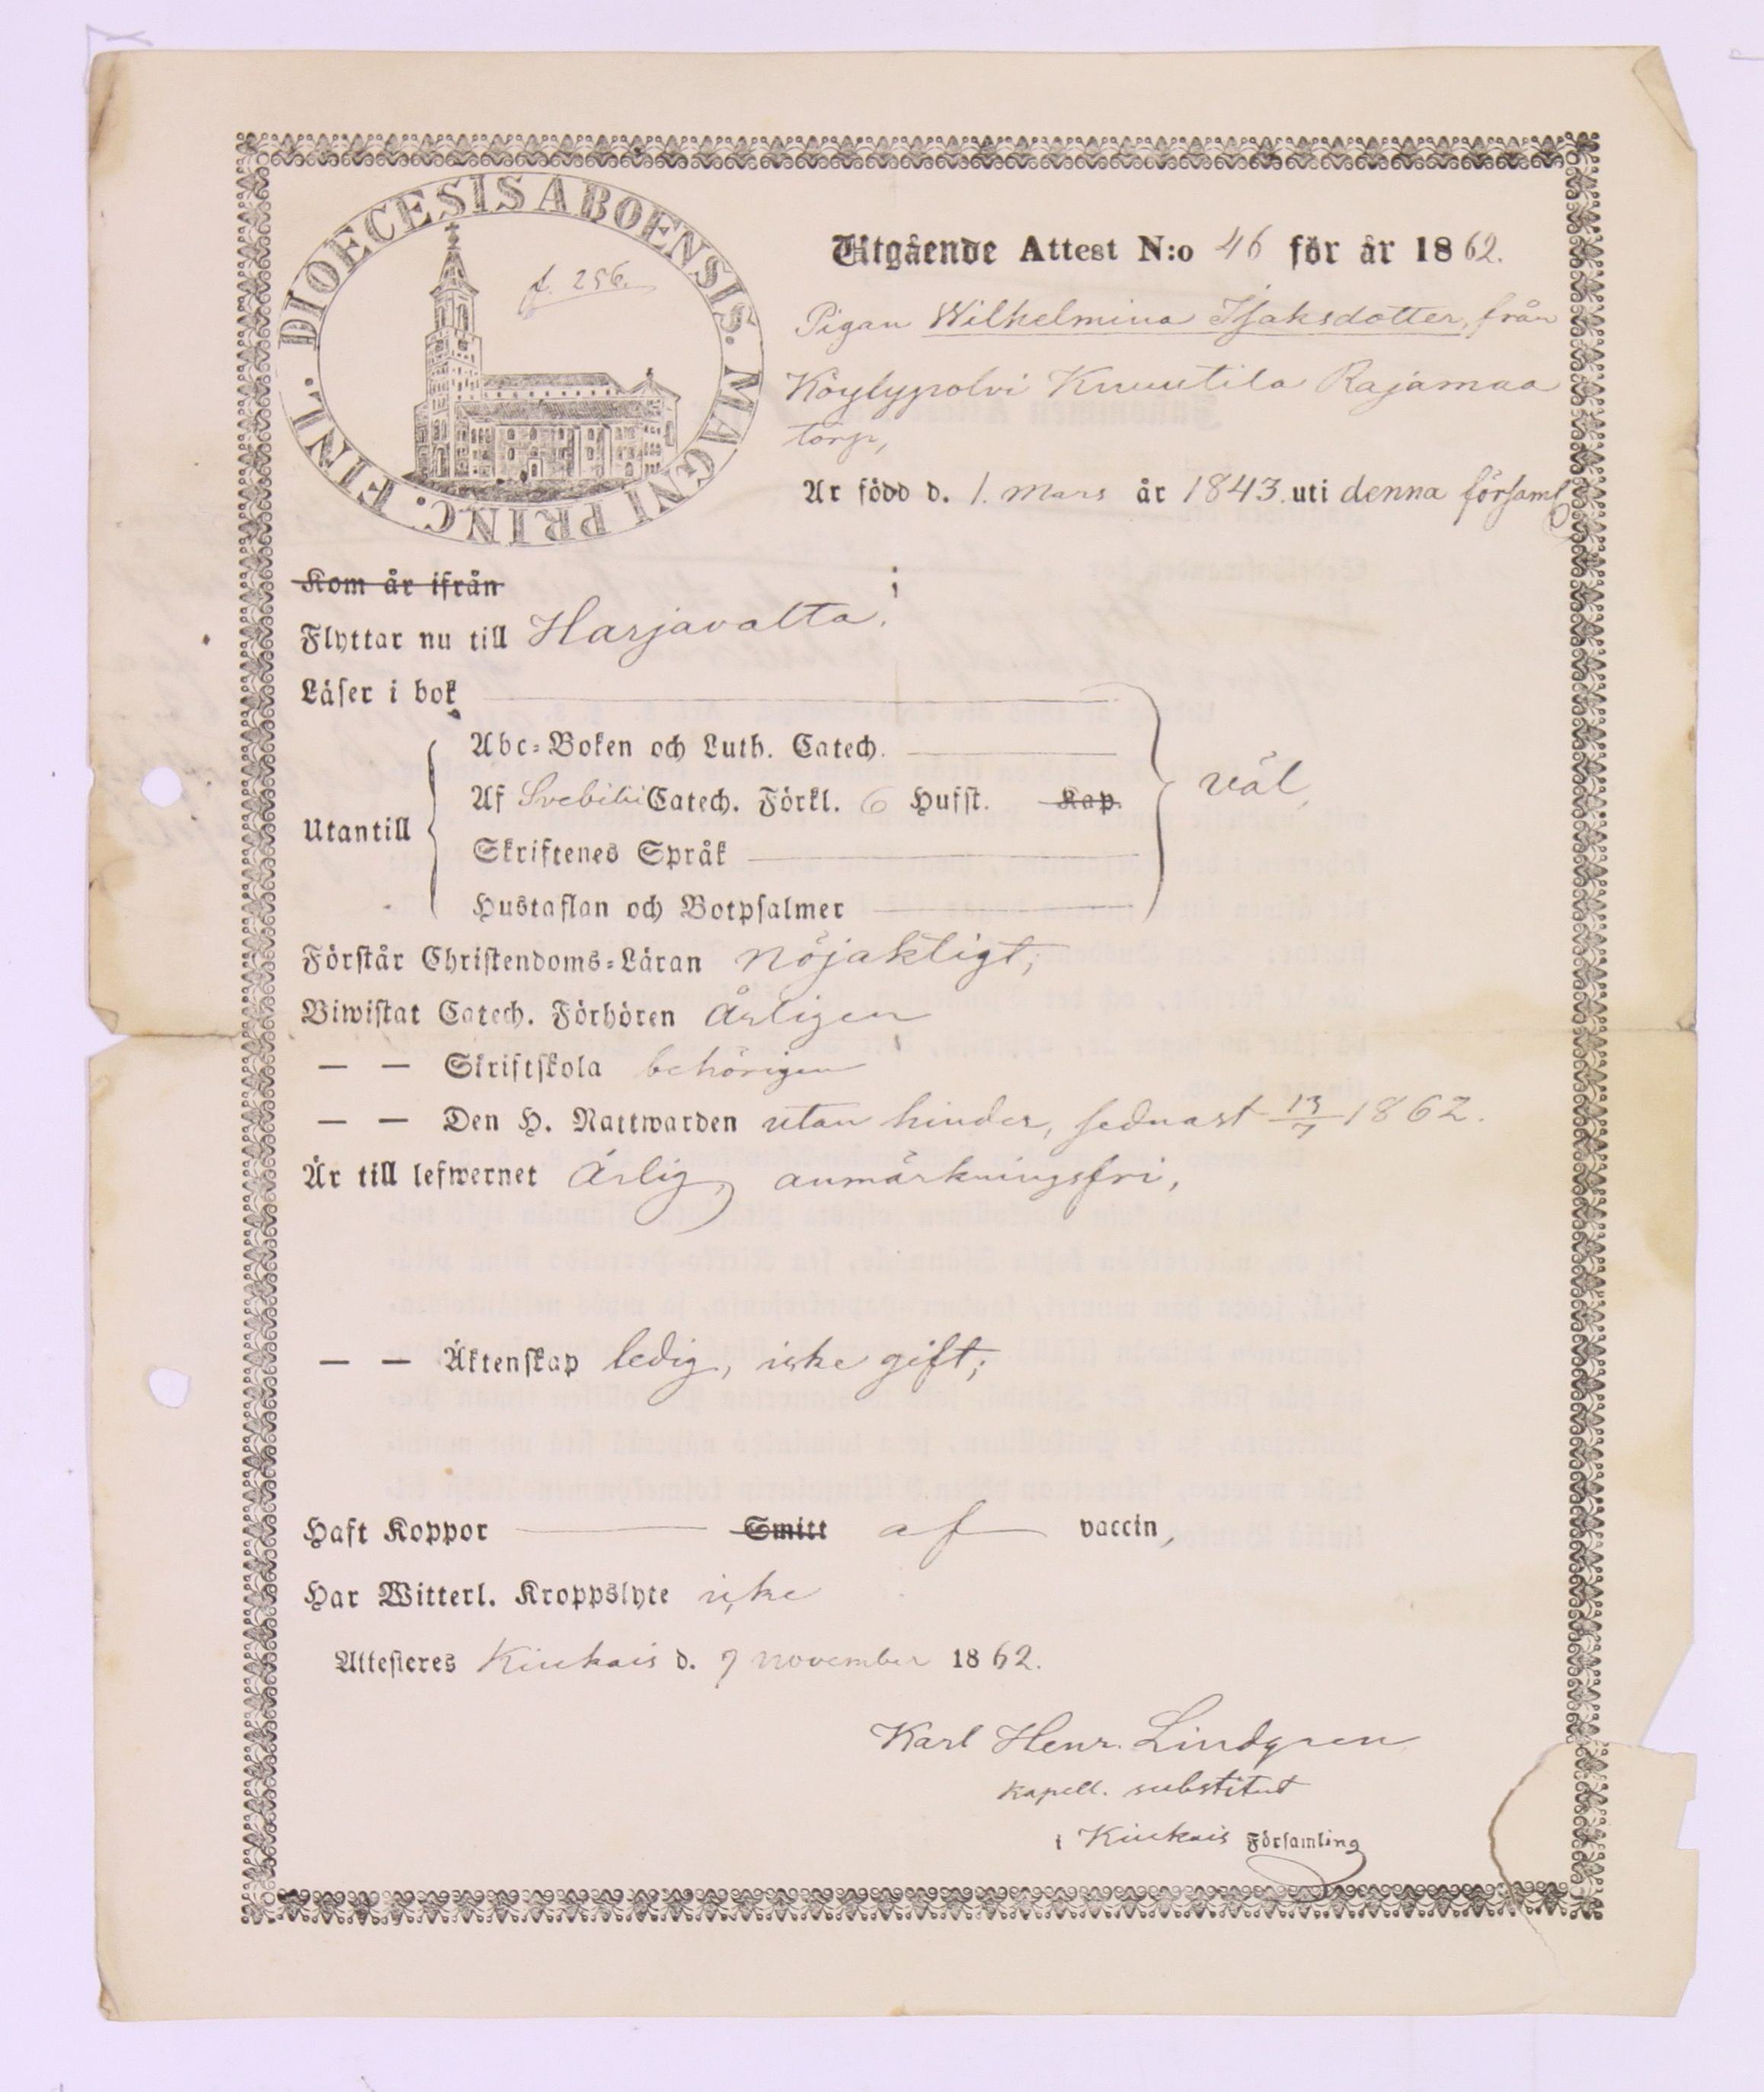 DIOECESIS ABOENSIS. MAGNI PRINC. FINL.
f. 256.
Utgående Attest N:o 46 för år 1862.
Pigan Wilhelmina Isaksdotter, från
Köylypolvi Knuutila Rajamaa
torp,
Är född d. 1. Mars år 1843. uti denna församl
Kom år ifrån
Flyttar nu till Harjavalta;
Läser i bok
Abc-Boken och Luth. Catech.
Af Svebilii Catech. Förkl. 6 Hufst. Kap.
väl,
Utantill
Skriftenes Språk
Hustaflan och Botpsalmer
Förstår Christendoms-Läran nöjaktigt;
Biwistat Catech. Förhören årligen
— — Skriftskola behörigen
— — Den H. Nattwarden utan hinder, sednast 13/7 1862.
Är till lefwernet ärlig, anmärkningsfri,
— — Äktenskap ledig, icke gift;
Haft Koppor Smitt af vaccin,
Har Witterl. Kroppslyte icke
Attesteres Kiukais d. 7 november 1862.
Karl Henr. Lindgren
kapell. substitut
i Kiukais Församling